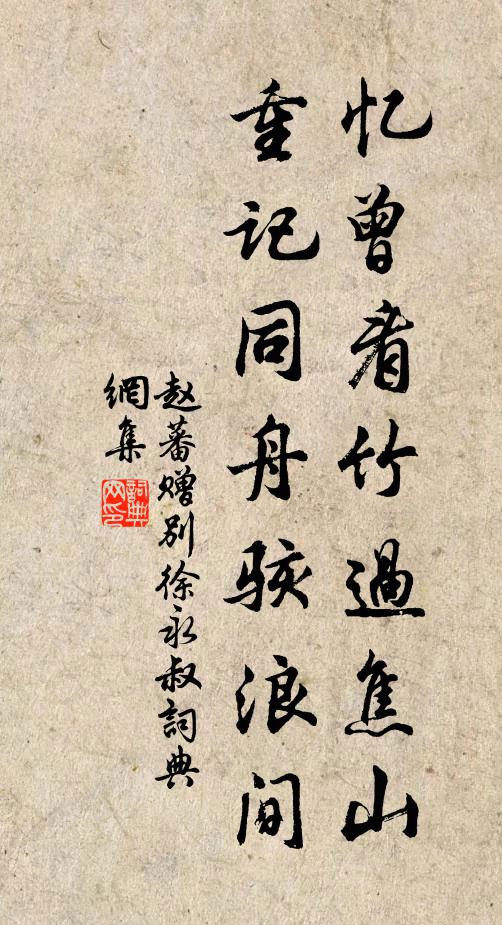 忆曾看竹過焦山
重记同舟骇浪间
赵蕃赠别徐永叔詞典
網集
詞典
网印